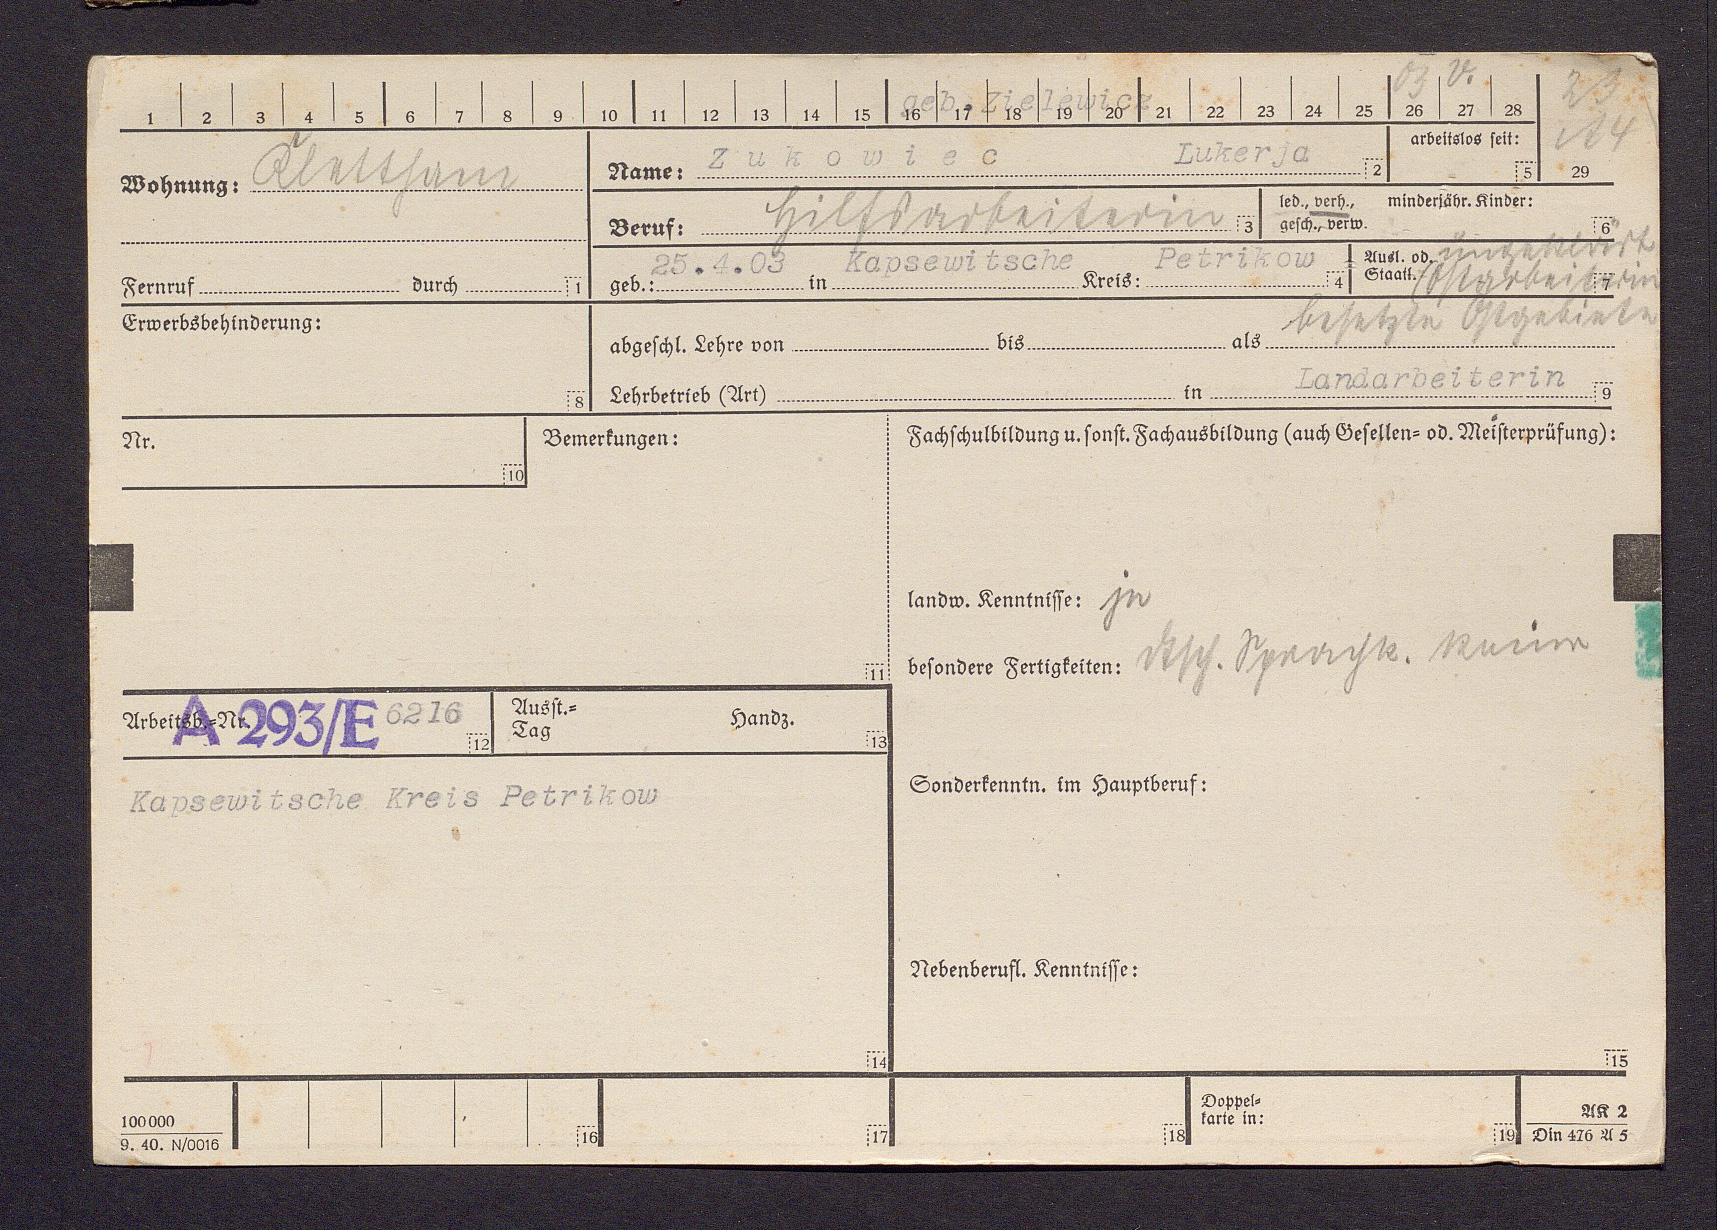 03 V.
geb. Zielewicz
1 2 3 4 5 6 7 8 9 10 11 12 13 14 15 16 17 18 19 20 21 22 23 24 25 26 27 28
23
Wohnung: Klettham
Name: Zukowiec Lukerja 2
arbeitslos seit: 5
29
Beruf: Hilfsarbeiterin 3
led., verh., minderjähr. Kinder:
gesch., verw. 6
Fernruf durch 1
geb.: 25.4.03 in Kapsewitsche Kreis: Petrikow 4
Ausl. od. ungeklärt
Staatl. Ostarbeiterin 7
besetzte Ostgebiete
Erwerbsbehinderung: 8
abgeschl. Lehre von bis als
Lehrbetrieb (Art) in Landarbeiterin 9
Nr. 10
Bemerkungen: 11
Fachschulbildung u. sonst. Fachausbildung (auch Gesellen- od. Meisterprüfung):
landw. Kenntnisse: ja
besondere Fertigkeiten: dtsch. Sprachk. keine
Arbeitsb.-Nr. A 293/E 6216 12
Ausst.- Handz.
Tag 13
Kapsewitsche Kreis Petrikow
14
Sonderkenntn. im Hauptberuf:
Nebenberufl. Kenntnisse:
15
100000
9. 40. N/0016
16
17
18
Doppel-
karte in: 19
AK 2
Din 476 A 5